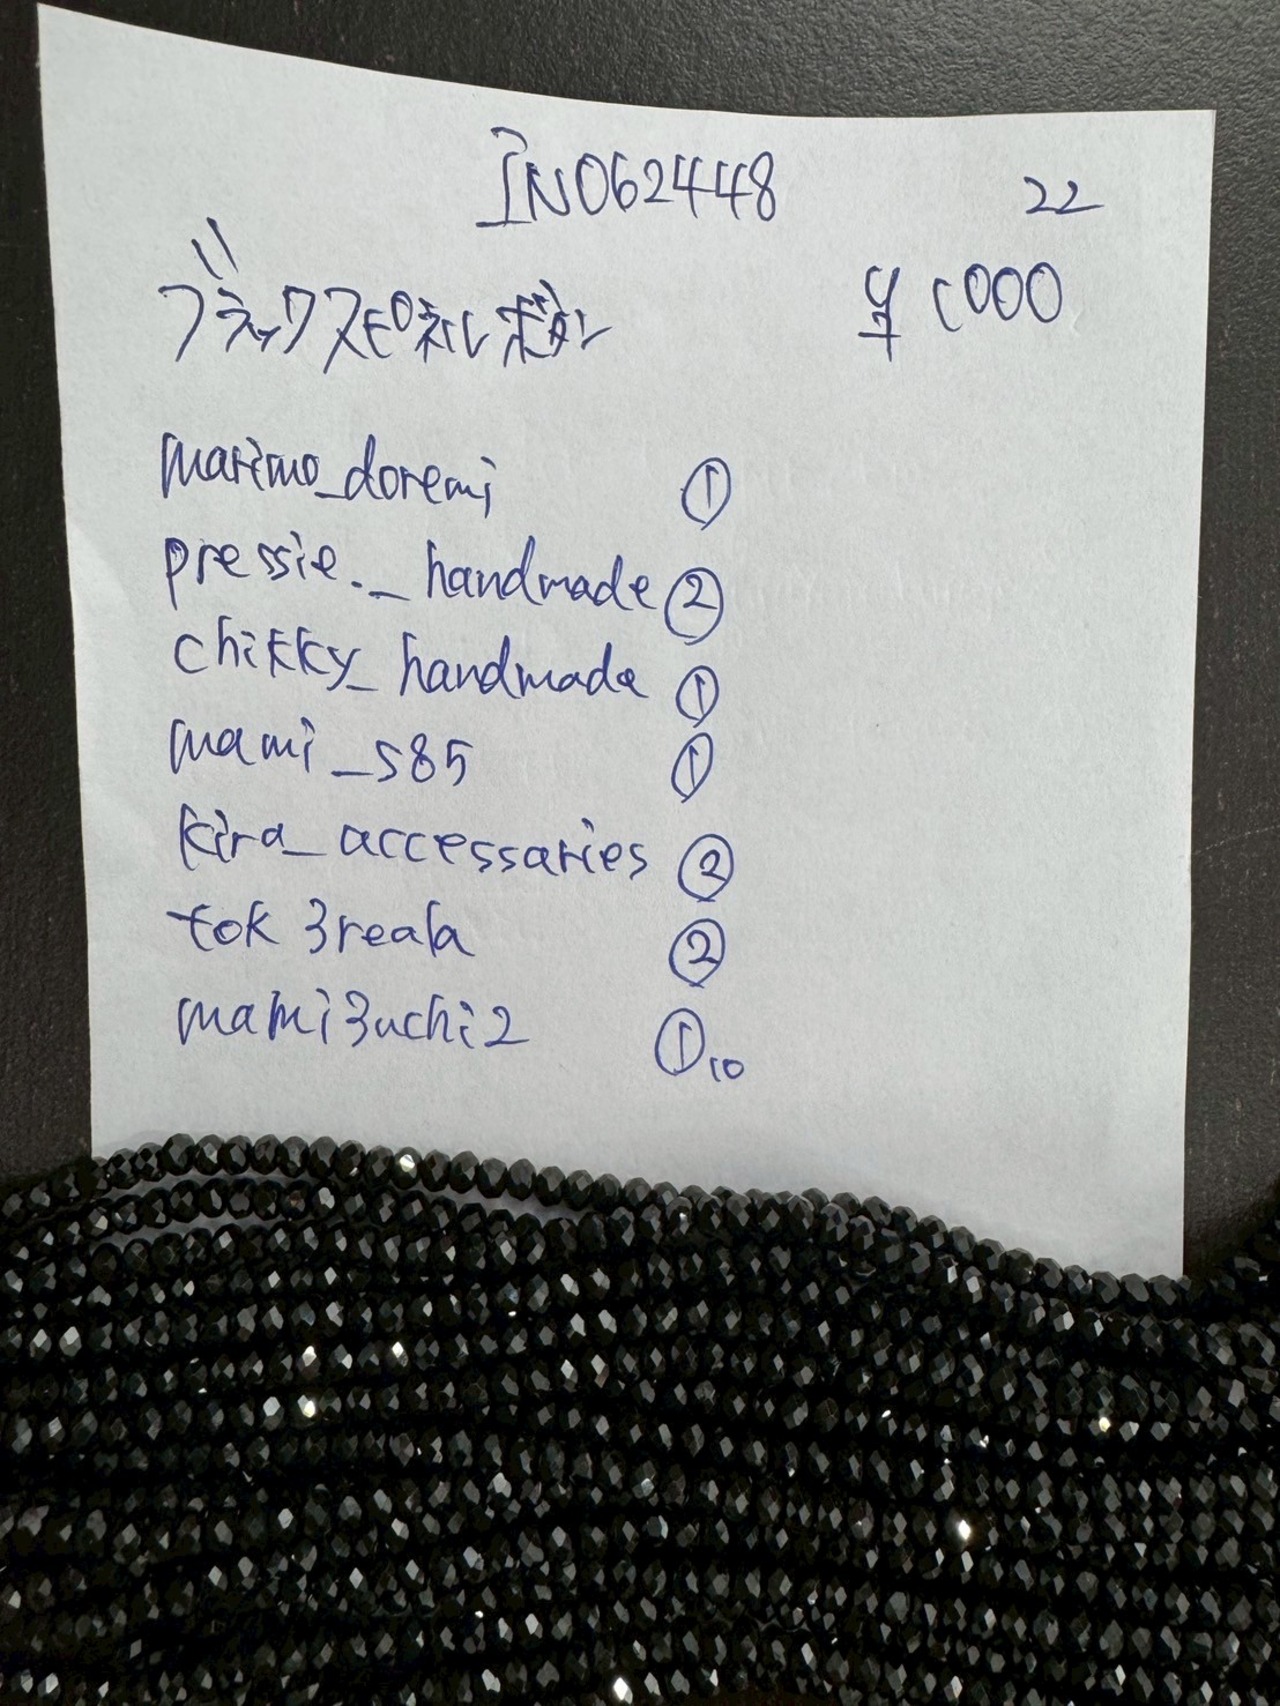 IN062448 22
ブラックスピネルボタン ¥1000
marimo_doremi ①
pressie._handmade ②
chikky_handmade ①
mami_s85 ①
kira_accessaries ②
tok3reala ②
mami3uchi2 ① 10